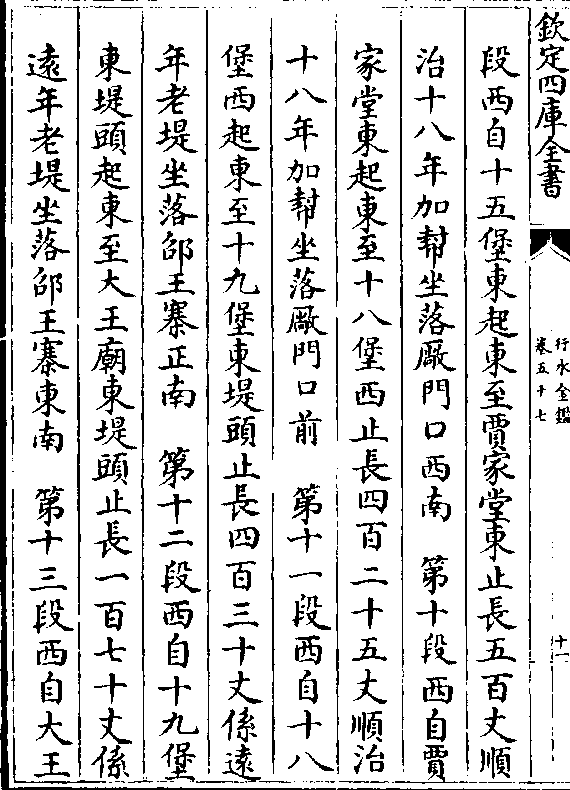 欽定四庫全書
行水金鑑
卷五十七
十一
段西自十五堡東起東至賈家堂東止長五百丈順
治十八年加幇坐落厰門口西南　第十段西自賈
家堂東起東至十八堡西止長四百二十五丈順治
十八年加幇坐落厰門口前　第十一段西自十八
堡西起東至十九堡東堤頭止長四百三十丈係遠
年老堤坐落邵王寨正南　第十二段西自十九堡
東堤頭起東至大王廟東堤頭止長一百七十丈係
遠年老堤坐落邵王寨東南　第十三段西自大王